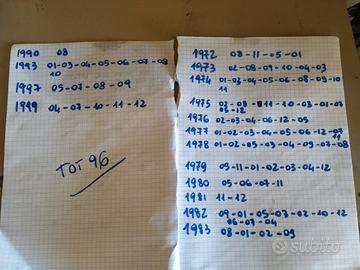 1990 08
1993 01-03-04-05-06-07-08
10
1997 05-07-08-09
1999 04-07-10-11-12
TOT 96
1972 08-11-05-01
1973 02-08-09-10-04-03
1974 01-03-04-05-06-08-09-10
11
1975 11-10-03-01-07
06-12
1976 02-03-04-06-12-05
1977 01-02-03-04-05-06-12-07
11
1978 01-02-05-04-03-09-07-08
1979 09-11-01-02-03-04-12
1980 05-06-07-11
1981 11-12
1982 09-01-05-03-02-10-12
06-07-04
1983 08-01-02-09
subito